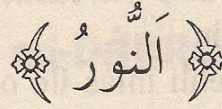 ﴿ اَلنُّورُ ﴾